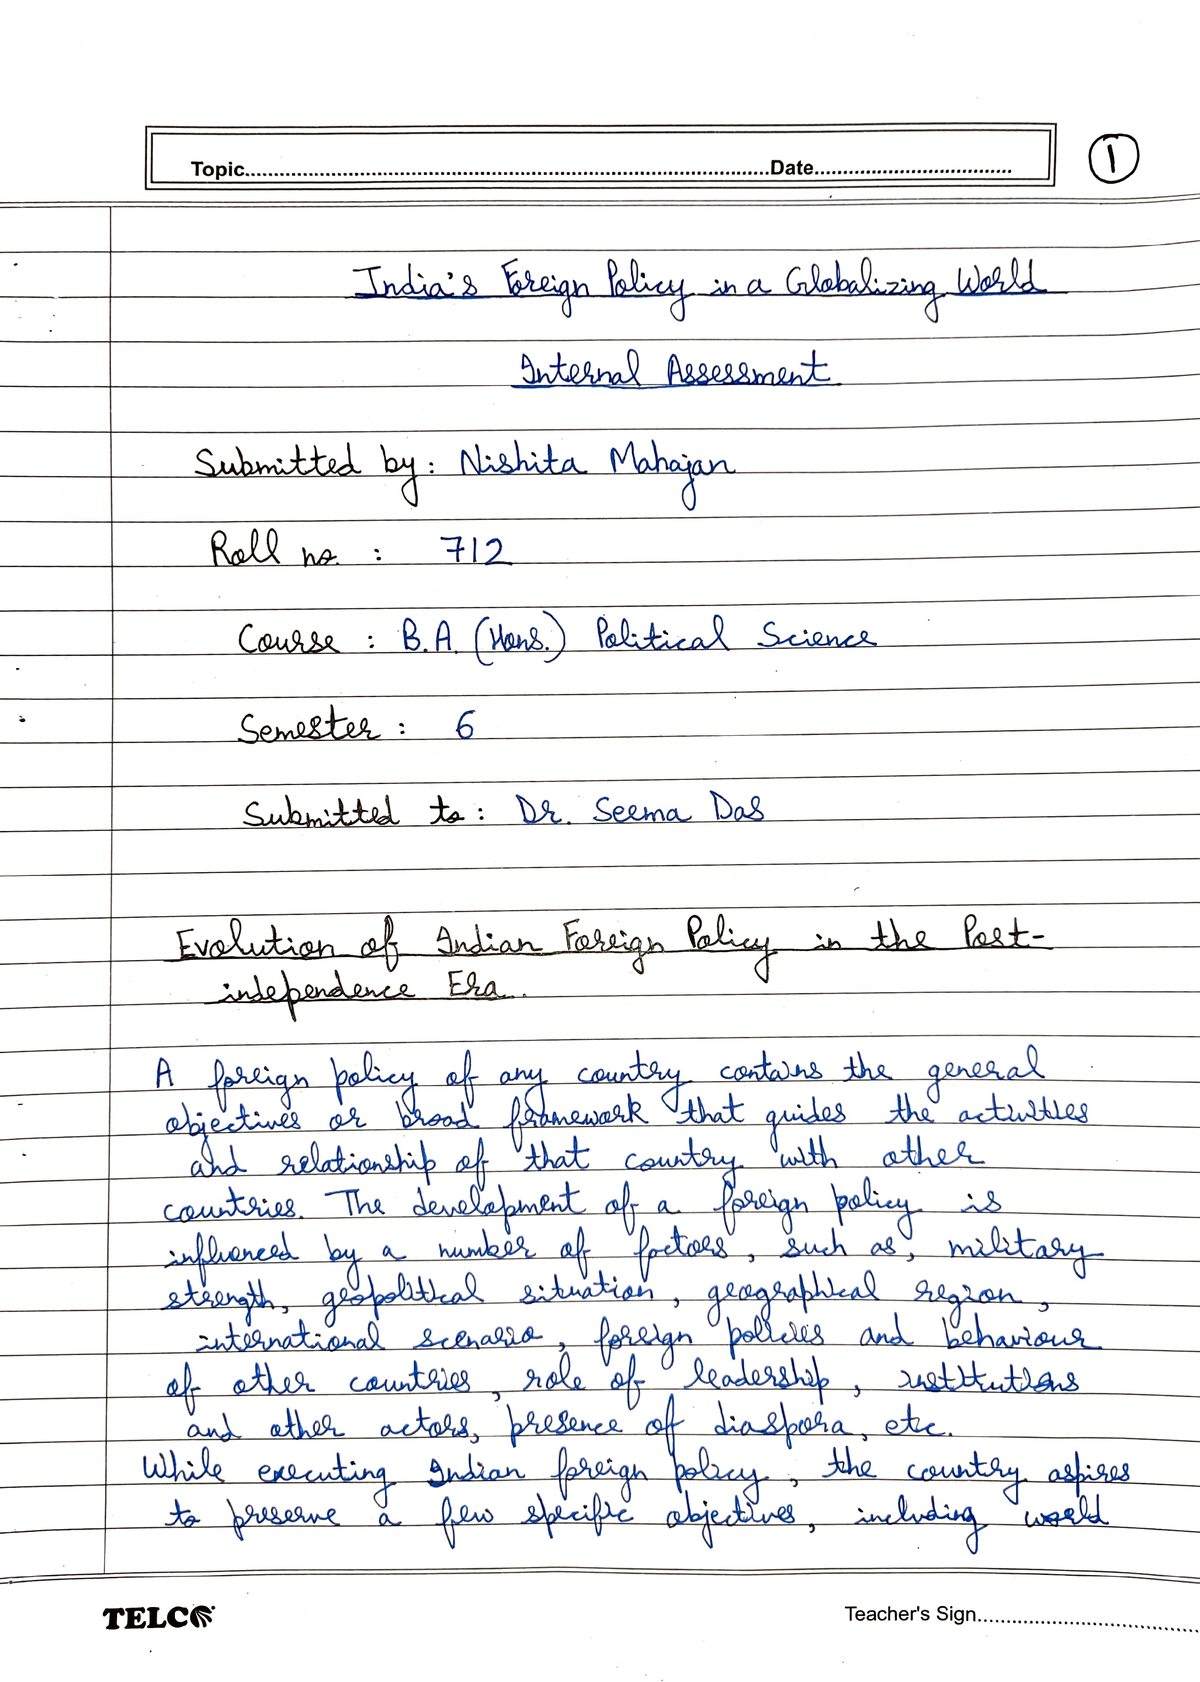 Topic..........Date..........
1
India's Foreign Policy in a Globalizing World
Internal Assessment
Submitted by: Nishita Mahajan
Roll no. : 712
Course : B.A. (Hons.) Political Science
Semester : 6
Submitted to : Dr. Seema Das
Evolution of Indian Foreign Policy in the Post-
independence Era.
A foreign policy of any country contains the general
objectives or broad framework that guides the activities
and relationship of that country with other
countries. The development of a foreign policy is
influenced by a number of factors, such as, military
strength, geopolitical situation, geographical region,
international scenario, foreign policies and behaviour
of other countries, role of leadership, institutions
and other actors, presence of diaspora, etc.
While executing Indian foreign policy, the country aspires
to preserve a few specific objectives, including world
TELCO
Teacher's Sign..........